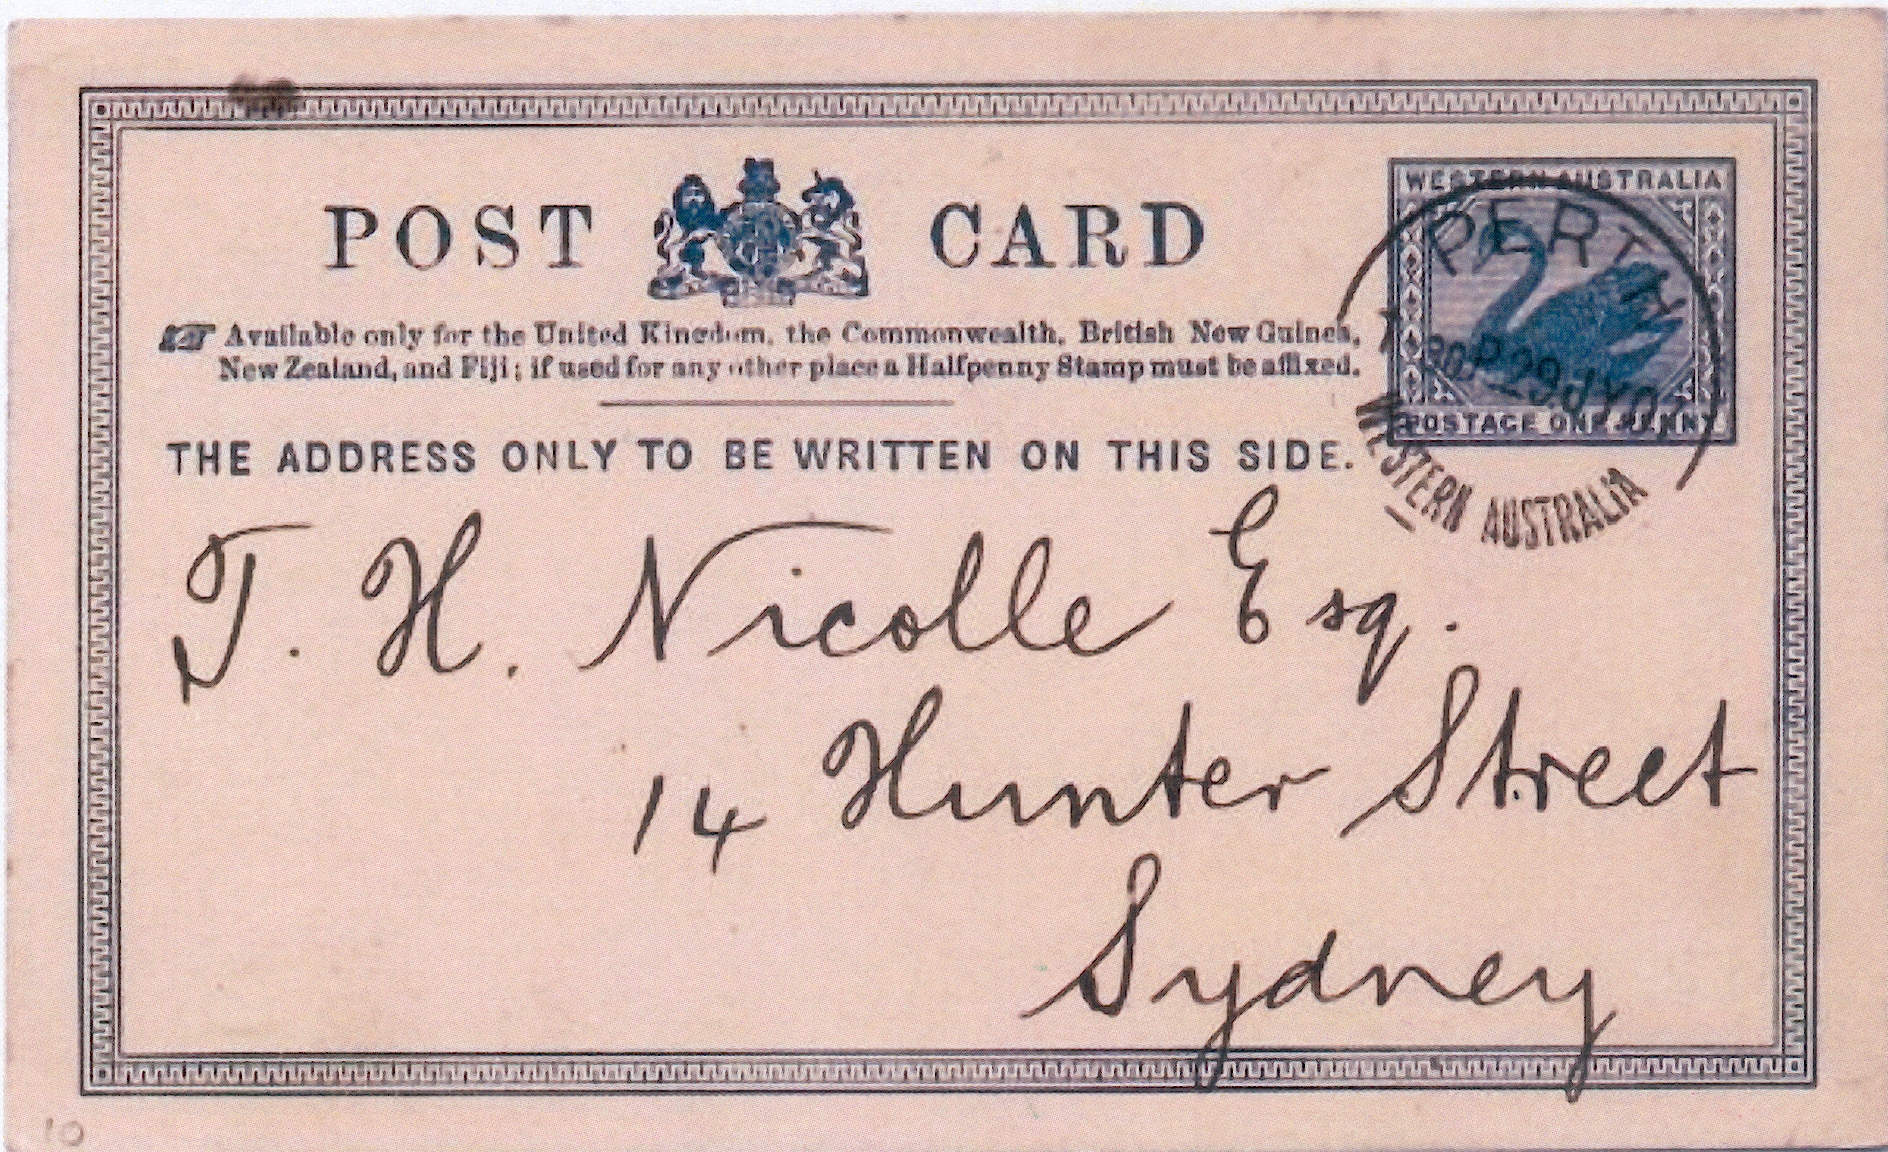 POST CARD
Available only for the United Kingdom, the Commonwealth, British New Guinea,
New Zealand, and Fiji; if used for any other place a Halfpenny Stamp must be affixed.
THE ADDRESS ONLY TO BE WRITTEN ON THIS SIDE.
WESTERN AUSTRALIA
POSTAGE ONE PENNY
PERTH
WESTERN AUSTRALIA
T. H. Nicolle Esq.
14 Hunter Street
Sydney
10